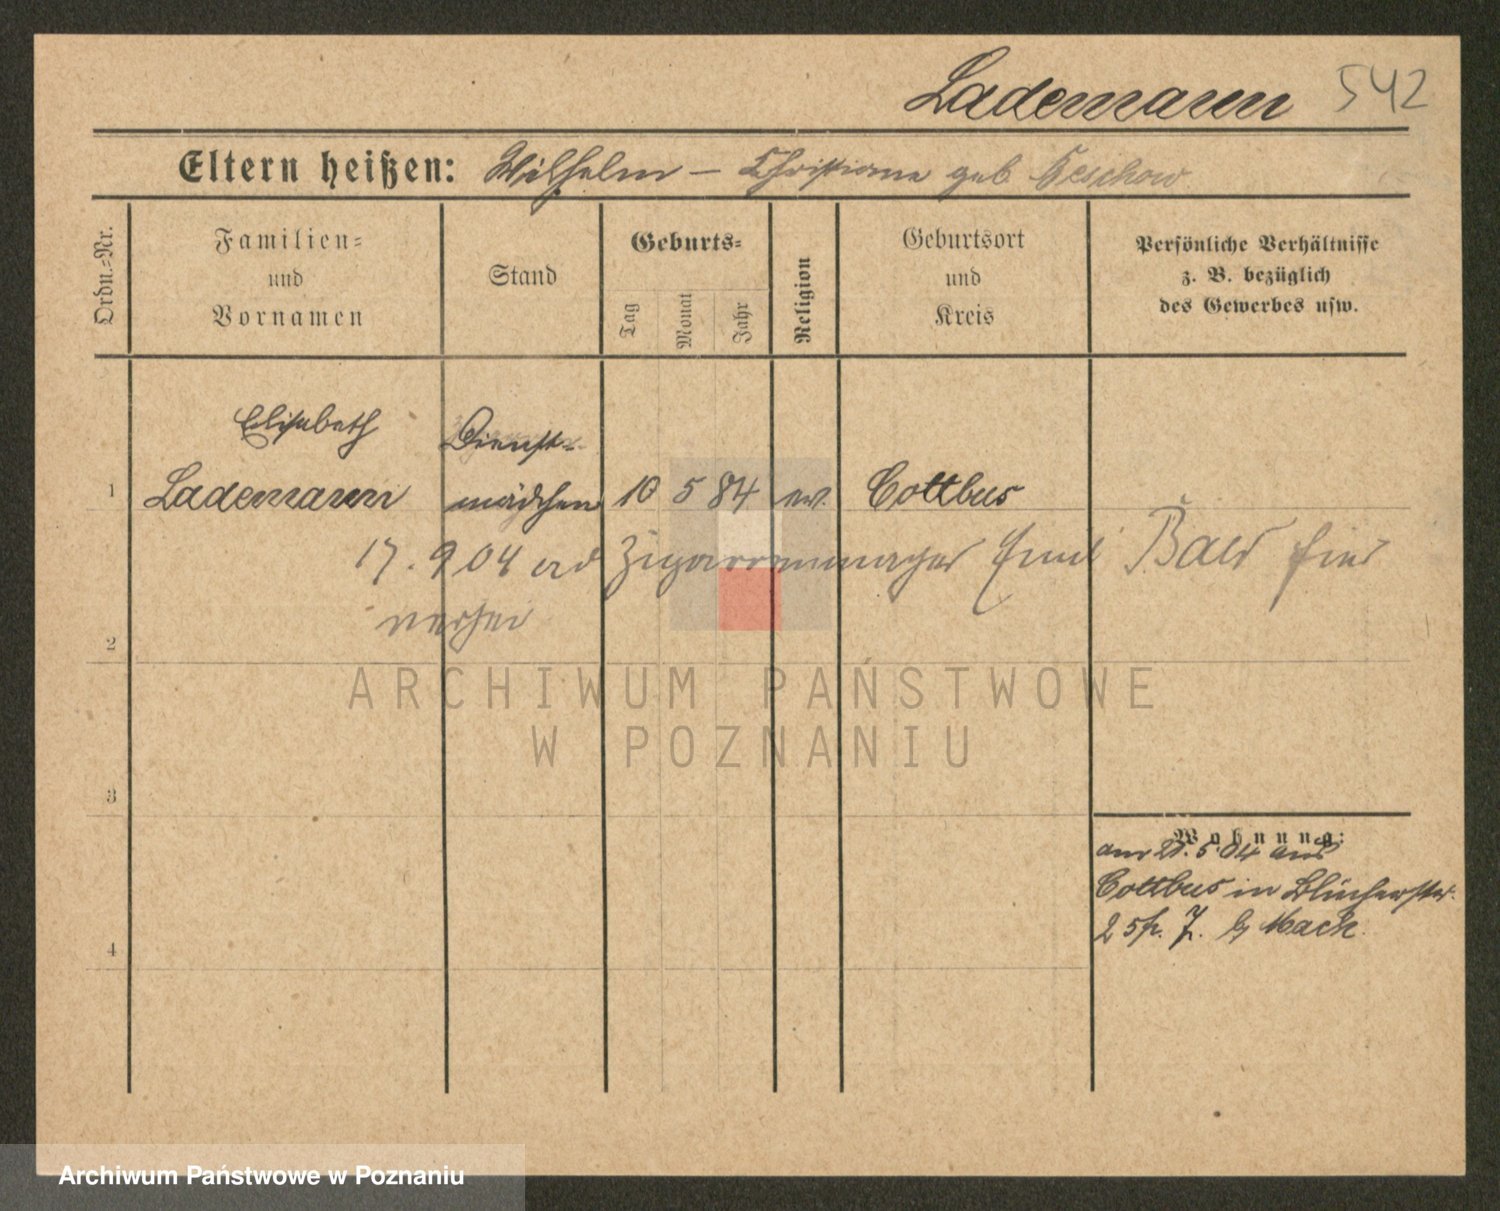 Lademann 542
Eltern heißen: Wilhelm – Christiane geb Geschow
Ordn.-Nr.
Familien-
und
Vornamen
Stand
Geburts-
Tag
Monat
Jahr
Religion
Geburtsort
und
Kreis
Persönliche Verhältnisse
z. B. bezüglich
des Gewerbes usw.
Elisabeth Dienst-
1 Lademann mädchen 10 5 84 ev. Cottbus
17. 9 04 Zigarrenmacher Emil Bald hier
2
3
4
Wohnung:
am 21. 5. 04 aus
Cottbus in Blücherstr.
25 b. Mack.
ARCHIWUM PAŃSTWOWE
W POZNANIU
Archiwum Państwowe w Poznaniu